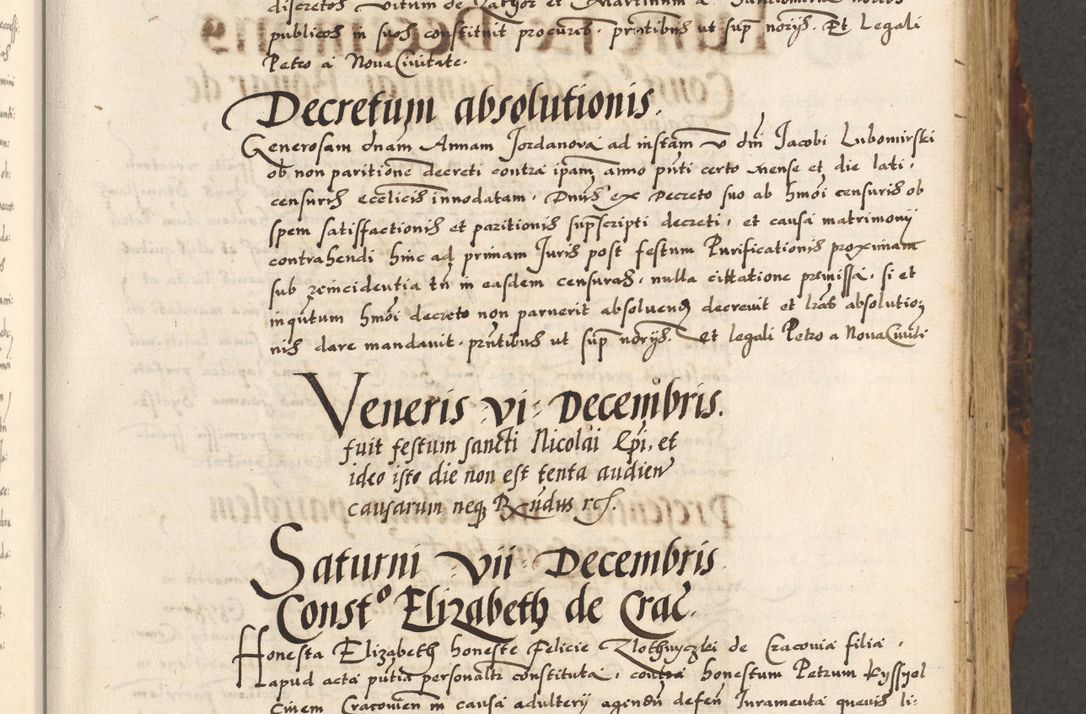 discretos Vitum de Zathor et Martinum a
publicos in suos constituit procurat. pntibus ut sup norijs. Et Legali
Petro a Nova Civitate.
Decretum absolutionis.
Generosam dnam Annam Jordanova ad instam v dni Jacobi Lubomirski
ob non paritione decreti contra ipam anno pnti certo mense et die lati.
censuris ecclicis innodatam. Dnus ex Decreto suo ab hmoi censuris ob
spem satisfactionis et paritionis supscripti decreti. et causa matrimonij
contrahendi hinc ad primam Juris post festum Purificationis proximam
sub reincidentia tn in easdem censuras. nulla cittatione premissa. si et
inqutum hmoi decreto non paruerit absoluend decrevit et lras absolutio
nis dare mandavit. prntibus ut sup norijs. et legali Petro a Nova Civiti
Veneris vi Decembris.
fuit festum sancti Nicolai Epi, et
ideo isto die non est tenta audien
causarum neq Rndus
Saturni vii Decembris
Consto Elizabeth de Crac.
Honesta Elizabeth honeste Felicie de Cracovia filia.
apud acta putia personaltr constituta. contra honestum Petrum
Civem Cracovien in causa adulterij agendn defen Juramenta quevis li: